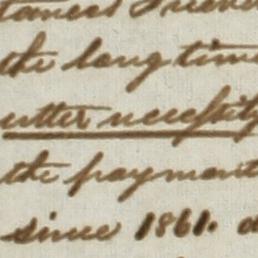 the long time
utter necessity
the payment
since 1861.